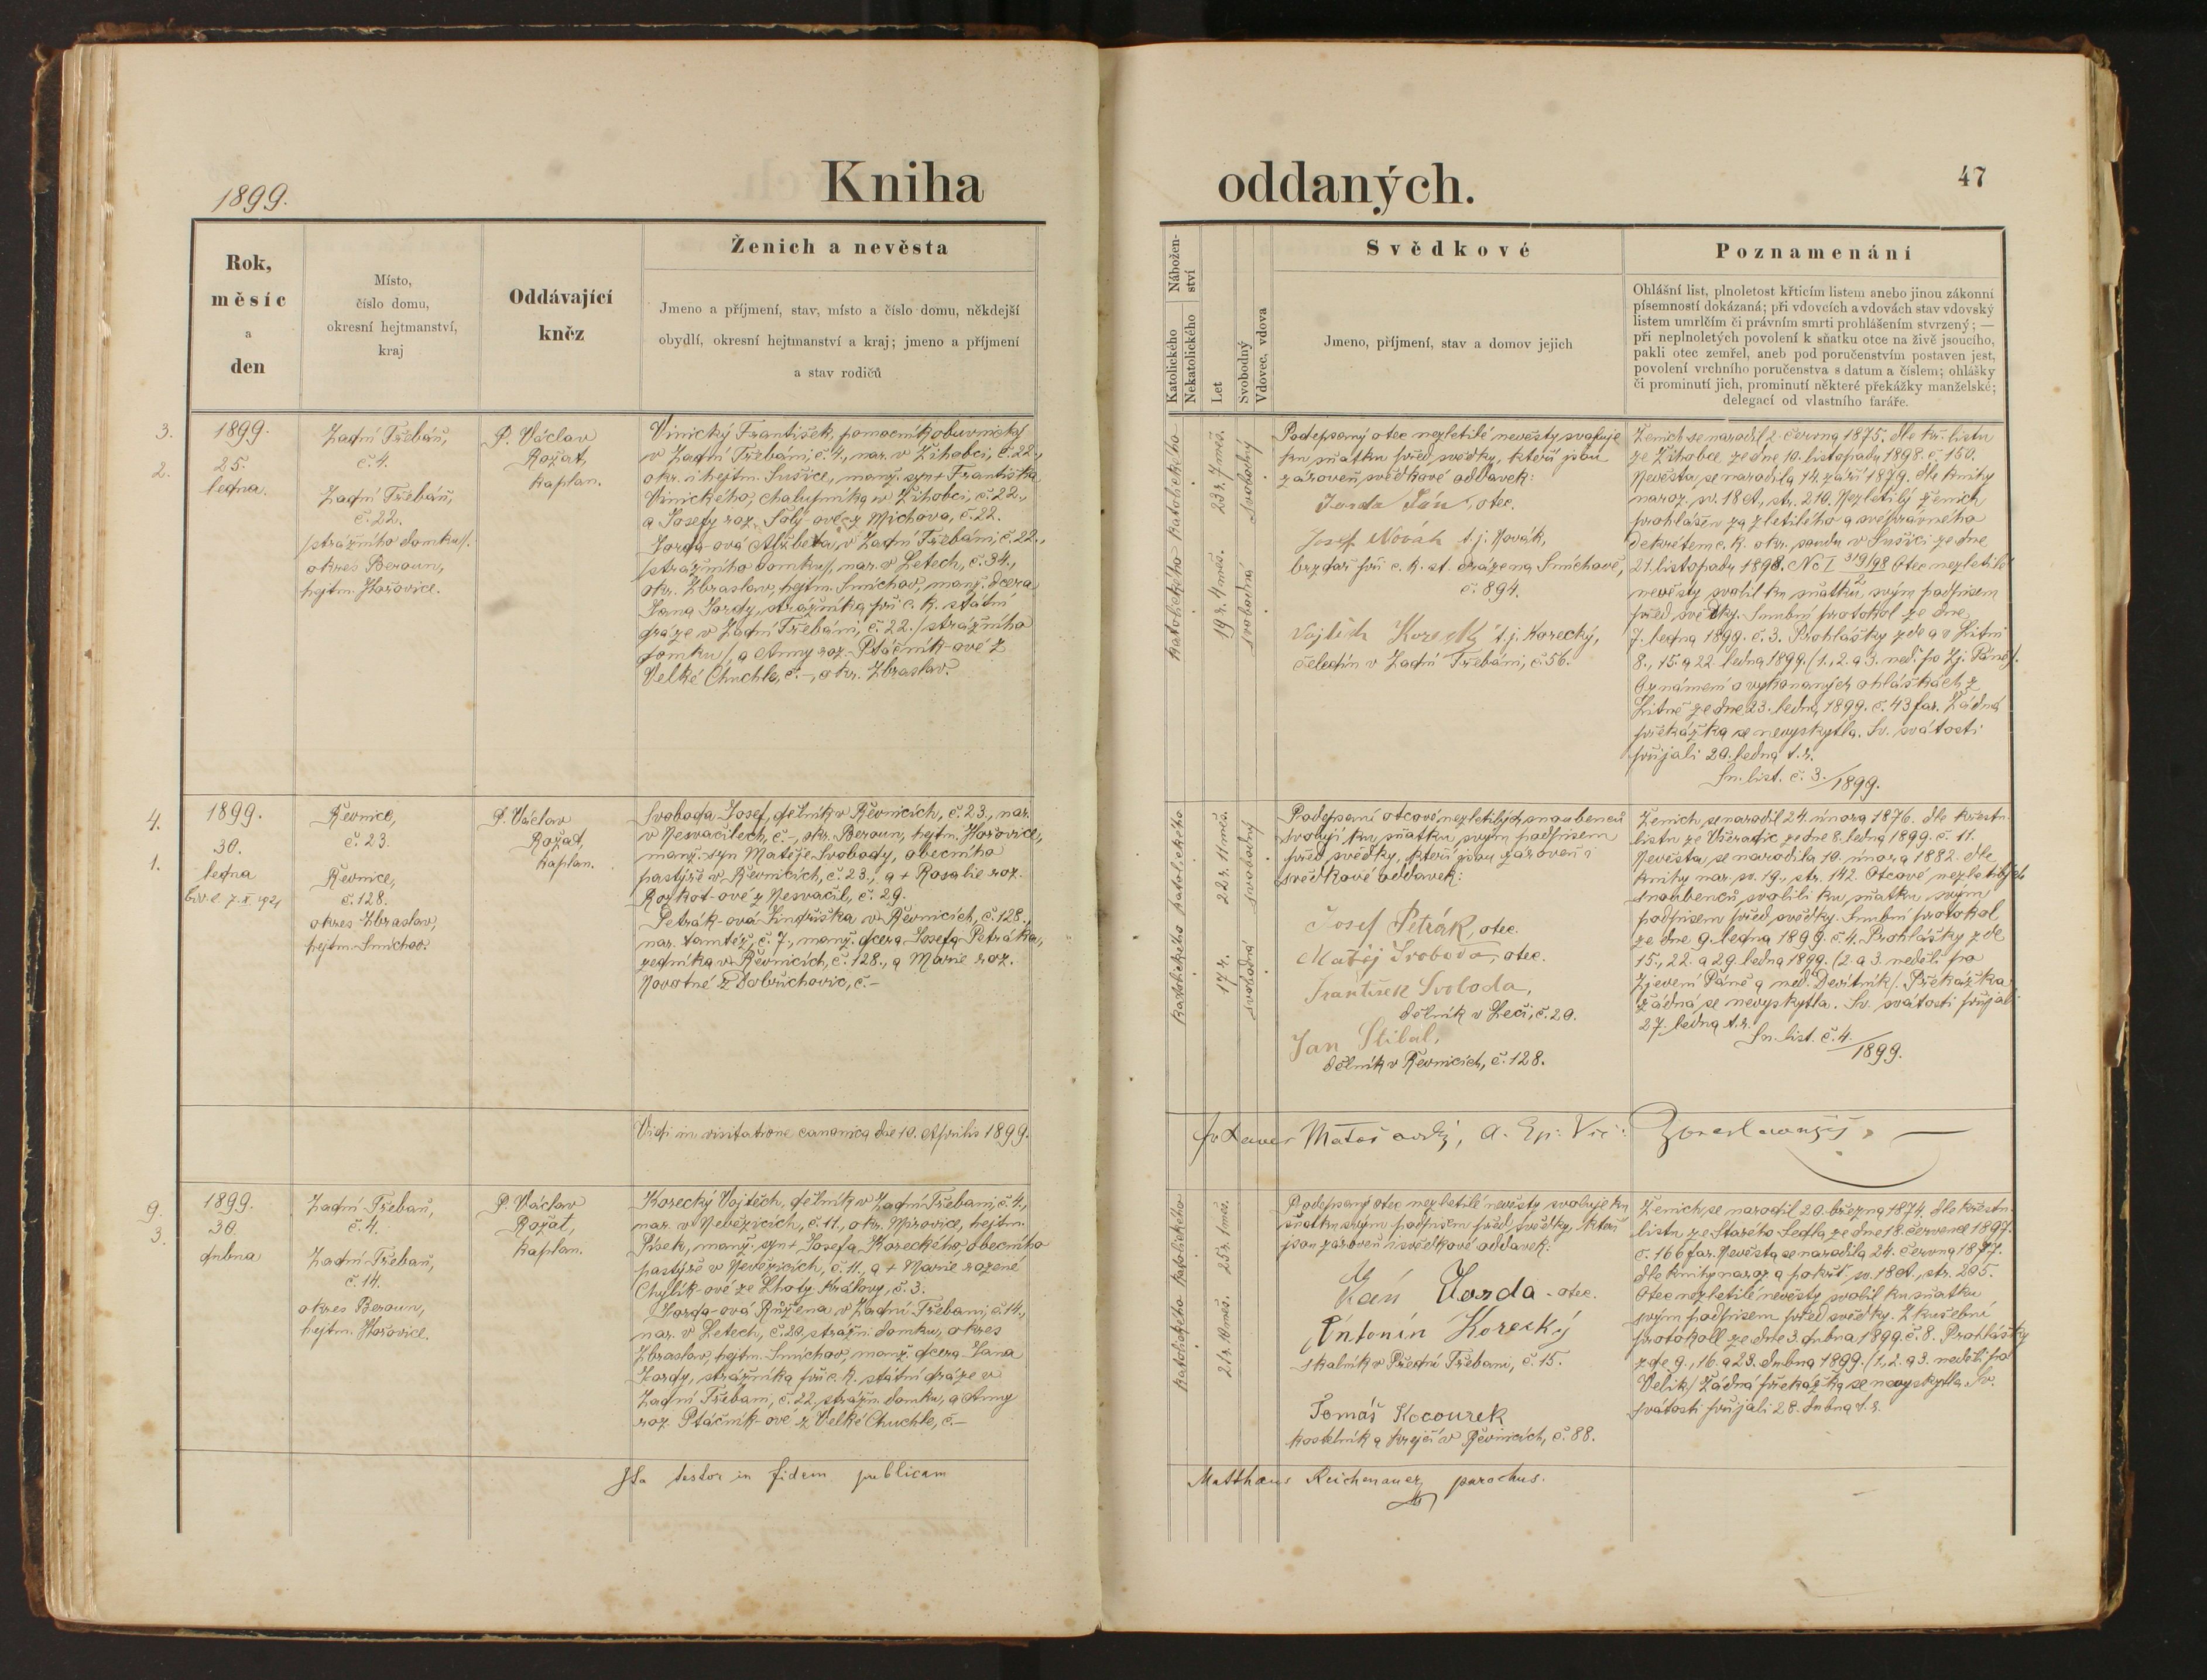 1899.
Kniha
oddaných.
47
Rok,
měsíc
a
den
Místo,
číslo domu,
okresní hejtmanství,
kraj
Oddávající
kněz
Ženich a nevěsta
Jmeno a příjmení, stav, místo a číslo domu, někdejší
obydlí, okresní hejtmanství a kraj; jmeno a příjmení
a stav rodičů
Nábožen-
ství
Katolického
Nekatolického
Let
Svobodný
Vdovec, vdova
Svědkové
Jmeno, příjmení, stav a domov jejich
Poznamenání
Ohlášní list, plnoletost křticím listem anebo jinou zákonní
písemností dokázaná; při vdovcích a vdovách stav vdovský
listem umrlčím či právním smrti prohlášením stvrzený; —
při neplnoletých povolení k sňatku otce na živě jsoucího,
pakli otec zemřel, aneb pod poručenstvím postaven jest,
povolení vrchního poručenstva s datum a číslem; ohlášky
či prominutí jich, prominutí některé překážky manželské;
delegací od vlastního faráře.
3.
2.
1899.
25.
ledna.
Zadní Třebáň,
č. 4.
Zadní Třebáň,
č. 22.
/strážního domku/.
okres Beroun,
hejtm. Hořovice.
P. Václav
Rožát,
kaplan.
Vinický František, pomocník obuvnický
v Zadní Třebáni, č. 4., nar. v Žihobci, č. 22.,
okr. i hejtm. Sušice, manž. syn + Františka
Vinického, chalupníka v Žihobci, č. 22.,
a Josefy roz. Šolý-ové z Míchova, č. 22.
Jorda-ová Alžběta, v Zadní Třebáni, č. 22.,
/strážního domku/, nar. v Letech, č. 34.,
okr. Zbraslav, hejtm. Smíchov, manž. dcera
Jana Jordy, strážníka při c. k. státní
dráze v Zadní Třebáni, č. 22. /strážního
domku/, a Anny roz. Ptáčník-ové z
Velké Chuchle, č. -, okr. Zbraslav.
katolického katolického
19 r. 4 měs. 23 r. 7 měs.
svobodná svobodný
Podepsaný otec nezletilé nevěsty svoluje
ku sňatku před svědky, kteří jsou
zároveň svědkové oddavek:
Jorda Ján, otec.
Josef Novák t. j. Novák,
brzdař při c. k. st. dráze na Smíchově,
č. 894.
Vojtěch Korecký t. j. Korecký,
čeledín v Zadní Třebáni, č. 56.
Ženich se narodil 2. června 1875. dle kř. listu
ze Žihobce ze dne 10. listopadu 1898. č. 150.
Nevěsta se narodila 14. září 1879. dle knihy
naroz. sv. 18 A, str. 210. Nezletilý ženich
prohlášen za zletilého a svéprávného
dekretem c. k. okr. soudu v Sušici ze dne
21. listopadu 1898. Nc I 319/98 Otec nezletilé
nevěsty svolil ku sňatku, svým podpisem
před svědky. Snubní protokol ze dne
7. ledna 1899. č. 3. Prohlášky zde a v Litni
8., 15. a 22. ledna 1899. /1., 2. a 3. ned. po Zj. Páně/.
Oznámení o vykonaných ohláškách z
Litně ze dne 23. ledna 1899. č. 43 far. Žádná
překážka se nevyskytla. Sv. svátosti
přijali 20. ledna t. r.
Sn. list. č. 3./1899.
4.
1.
1899.
30.
ledna
Řevnice,
č. 23.
Řevnice,
č. 128.
okres Zbraslav,
hejtm. Smíchov.
P. Václav
Rožát,
kaplan.
Svoboda Josef, dělník v Řevnicích, č. 23., nar.
v Nesvačilech, č. -, okr. Beroun, hejtm. Hořovice,
manž. syn Matěje Svobody, obecního
pastýře v Řevnicích, č. 23., a + Rosalie roz.
Rozkot-ové z Nesvačil, č. 29.
Petrák-ová Jindřiška v Řevnicích, č. 128.,
nar. tamtéž, č. 7., manž. dcera Josefa Petráka,
zedníka v Řevnicích, č. 128., a Marie roz.
Novotné z Dobřichovic, č. -
katolického katolického
17 r. 22 r. 11 měs.
svobodná svobodný
Podepsaní otcové nezletilých snoubenců
svolují ku sňatku svým podpisem
před svědky, kteří jsou zároveň i
svědkové oddavek:
Josef Petrák, otec.
Matěj Svoboda, otec.
František Svoboda,
dělník v Leči, č. 20.
Jan Stibal,
dělník v Řevnicích, č. 128.
Ženich se narodil 24. února 1876. dle křestn.
listu ze Všeradic ze dne 8. ledna 1899. č. 11.
Nevěsta se narodila 10. února 1882. dle
knihy nar. sv. 19., str. 142. Otcové nezletilých
snoubenců svolili ku sňatku svým
podpisem před svědky. Snubní protokol
ze dne 9. ledna 1899. č. 4. Prohlášky zde
15., 22. a 29. ledna 1899. /2. a 3. neděli po
Zjevení Páně a ned. Devítník/. Překážka
žádná se nevyskytla. Sv. svátosti přijali
27. ledna t. r.
Sn. list. č. 4./1899.
Vidi in visitatione canonica die 10. Aprilis 1899.
9.
3.
1899.
30.
dubna
Zadní Třebaň,
č. 4.
Zadní Třebaň,
č. 14.
okres Beroun,
hejtm. Hořovice.
P. Václav
Rožát,
kaplan.
Korecký Vojtěch, dělník v Zadní Třebani, č. 4.,
nar. v Nevězicích, č. 11., okr. Mirovice, hejtm.
Písek, manž. syn + Josefa Koreckého, obecního
pastýře v Nevězicích, č. 11., a + Marie rozené
Chylík-ové ze Lhoty Královy, č. 3.
Jorda-ová Růžena v Zadní Třebani, č. 14.,
nar. v Letech, č. 20, strážn. domku, okres
Zbraslav, hejtm. Smíchov, manž. dcera Jana
Jordy, strážníka při c. k. státní dráze v
Zadní Třebani, č. 22, strážn. domku, a Anny
roz. Ptáčník-ové z Velké Chuchle, č. -
katolického katolického
21 r. 10 měs. 25 r. 1 měs.
Podepsaný otec nezletilé nevěsty svoluje ku
sňatku svým podpisem před svědky, kteří
jsou zároveň i svědkové oddavek:
Jorda - otec.
Antonín Korecký
skalník v Přední Třebani, č. 15.
Tomáš Kocourek
kostelník a krejčí v Řevnicích, č. 88.
Ženich se narodil 20. března 1874. dle křestn.
listu ze Starého Sedla ze dne 18. července 1897.
č. 166 far. Nevěsta se narodila 24. června 1877.
dle knihy naroz. a pokřt. sv. 18 A., str. 205.
Otec nezletilé nevěsty svolil ku sňatku
svým podpisem před svědky. Zkušební
protokoll ze dne 3. dubna 1899. č. 8. Prohlášky
zde 9., 16. a 23. dubna 1899. /1., 2. a 3. neděli po
Velik./ Žádná překážka se nevyskytla. Sv.
svátosti přijali 28. dubna t. r.
Ita testor in fidem publicam
Matthaeus Reichenauer, parochus.